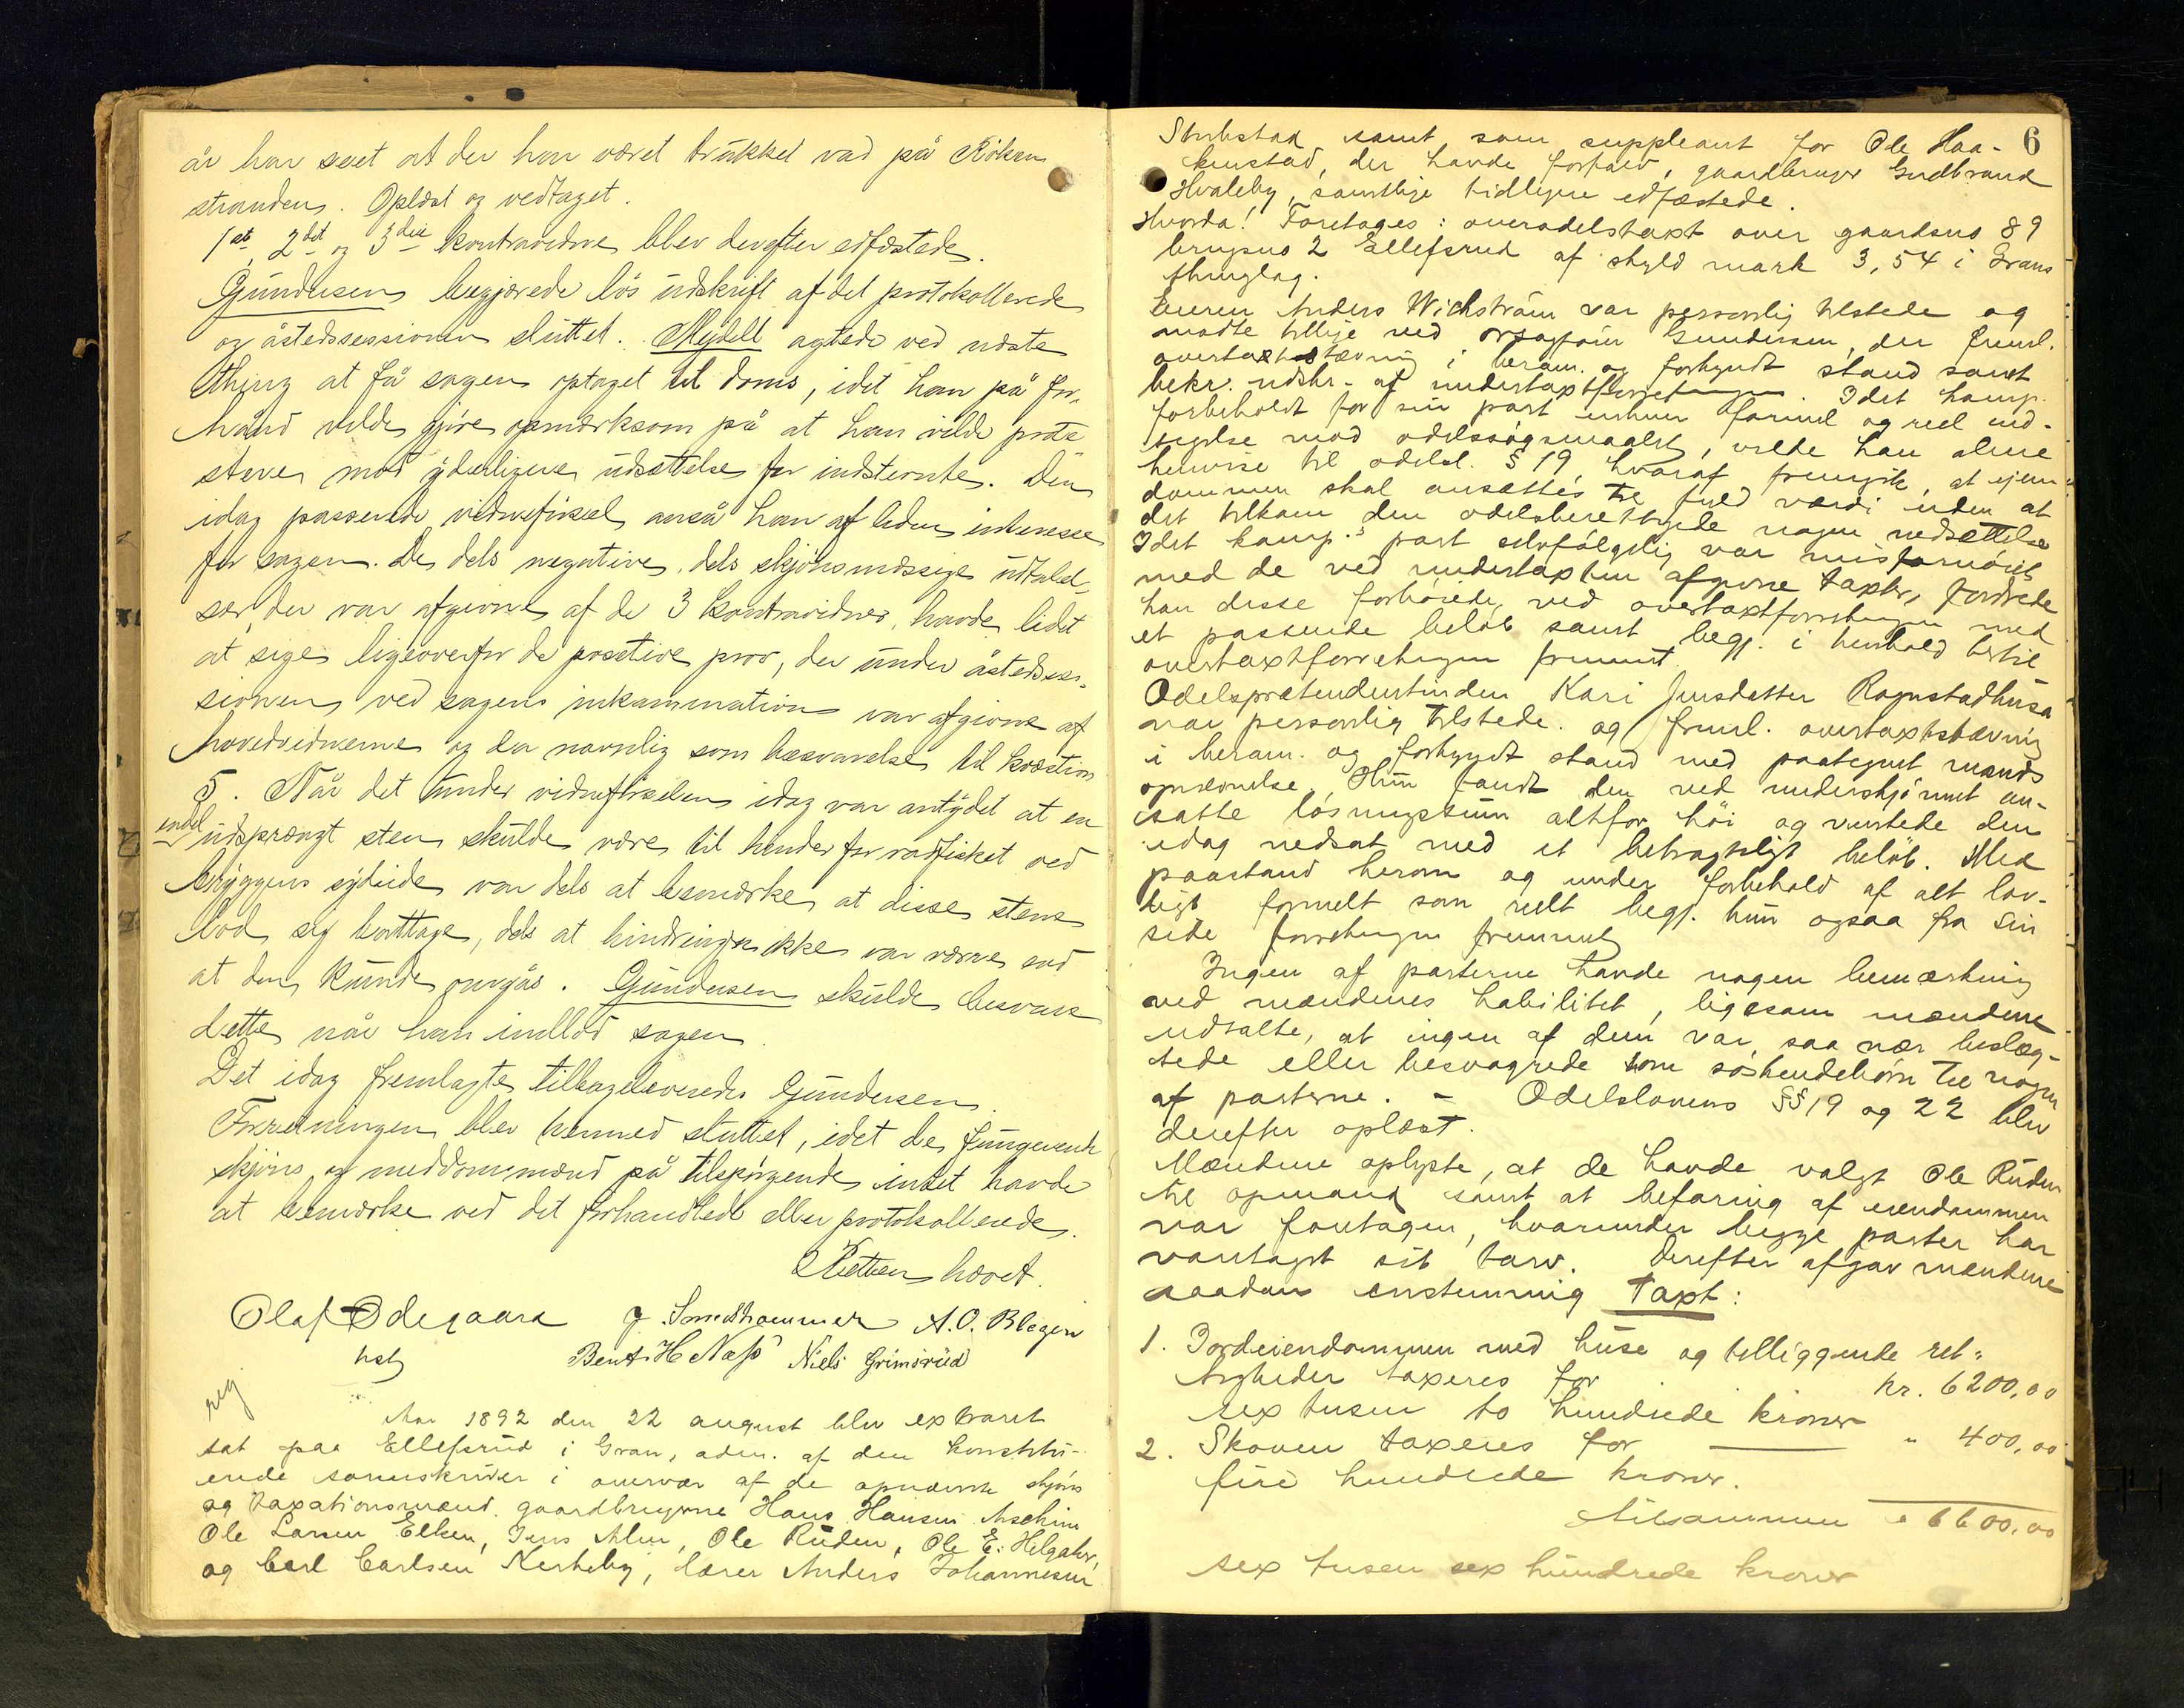 år har seet at der har været trukket vad på Röken
stranden. Oplæst og vedtaget.
1ste, 2det og 3die kontravidne blev derefter edfæstede.
Gundersen begjærede løs udskrift af det protokollerede
og åstedssessionen sluttet. Mydell agtede ved næste
thing at få sagen optaget til doms, idet han på for-
hånd vilde gjøre opmærksom på at han vilde prote
stere mod yderligere udsættelse for indstevnte. Den
idag passerede vidneførsel anså han af liden interesse
for sagen. De dels negative, dels skjønsmæssige udtalel-
ser, der var afgivne af de 3 kontravidner, havde lidet
at sige ligeoverfor de positive prov, der under åstedsses-
sionen ved sagens inkamination var afgivne af
hovedvidnerne og da navnlig som besvarelse til kvæstion
5. Når det under vidneførselen idag var antydet at en
endel udsprængt sten skulde være til hinder for vadfisket ved
bryggens sydside var dels at bemærke at disse stene
lod sig borttage, dels at hindringen ikke var værre end
at den kunde omgås. Gundersen skulde besvare
dette når han indlod sagen.
Det idag fremlagte tilbageleveredes Gundersen.
Forretningen blev hermed sluttet, idet de fungerende
skjøns og meddomsmænd på tilspørgende intet havde
at bemærke ved det forhandlede eller protokollerede.
Retten hævet.
Olaf Ödegaard J. Smedshammer A. O. Blegen
Bent H Næss Niels Grimsrud
Aar 1892 den 22 august blev extraret
sat paa Ellefsrud i Gran, adm. af den konstitu-
erede sorenskriver i overvær af de opnævnte skjøns
og taxationsmænd gaardbrugerne Hans Hansen Aschim
Ole Larsen Elken, Jens Alm, Ole Ruden, Ole E. Helgaker,
og Carl Carlsen Kerkeby, lærer Anders Johannesen
6
Stubstad samt som suppleant for Ole Haa-
kenstad, der havde forfald, gaardbruger Gudbrand
Hvaleby, samtlige tidligere edfæstede.
Hvorda! Foretages: overodelstaxt over gaardsno 89
brugsno 2 Ellefsrud af skyld mark 3,54 i Grans
thinglag.
Eieren Anders Wichström var personlig tilstede og
mødte tillige ved orsagfører Gundersen, der freml.
overtaxtstævning i beram. og forkyndt stand samt
bekr. udskr. af undertaxtforretningen. Idet komp.
forbeholdt for sin part enhver formel og reel ind-
sigelse mod odelssøgsmaalet, vilde han alene
henvise til odelsl. § 19, hvoraf fremgik, at ejen-
dommen skal ansættes til fuld værdi uden at
det tilkom den odelsberettigede nogen nedsættelse
Idet komp.s part selvfølgelig var misfornøiet
med de ved undertaxten afgivne taxter, fordrede
han disse forhøiede ved overtaxtforretningen med
et passende beløb samt begj. i henhold hertil
overtaxtforretningen fremmet.
Odelsprætendentinden Kari Jensdatter Rognstadhusa
var personlig tilstede og freml. overtaxtstævning
i beram. og forkyndt stand med paategnet mænds
opnævnelse. Hun fandt den ved underskjønnet an-
satte løsningssum altfor høi og ventede den
idag nedsat med et betragteligt beløb. Med
paastand herom og under forbehold af alt lov-
ligt formelt som reelt begj. hun ogsaa fra sin
side forretningen fremmet.
Ingen af parterne havde nogen bemærkning
ved mændenes habilitet, ligesom mændene
udtalte, at ingen af dem var saa nær beslæg-
tede eller besvogrede som søskendebørn til nogen
af parterne. - Odelslovens §§ 19 og 22 blev
derefter oplæst.
Mændene oplyste, at de havde valgt Ole Ruden
til opmand samt at befaring af eiendommen
var foretagen, hvorunder begge parter har
varetaget sit tarv. Derefter afgav mændene
saadan enstemmig Taxt:
1. Jordeiendommen med huse og tilliggende ret-
tigheder taxeres for kr. 6200,00
sex tusen to hundrede kroner
2. Skoven taxeres for " 400,00
fire hundrede kroner.
Tilsammen " 6600,00
sex tusen sex hundrede kroner